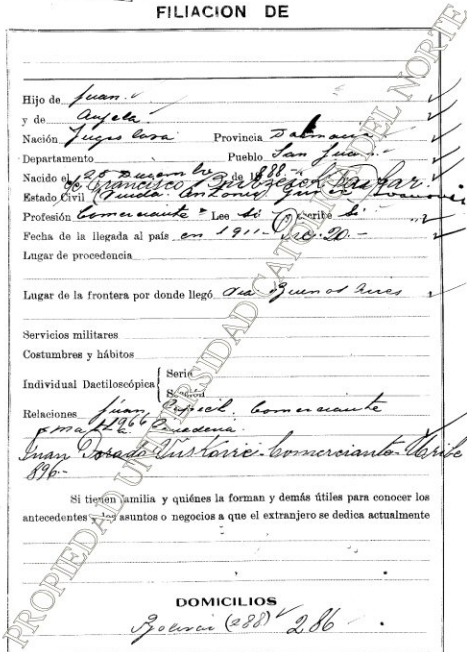 FILIACION DE
Hijo de Juan
y de Angela
Nación Jugoslava Provincia Dalmacia
Departamento Pueblo San Juan
Nacido el 25 Diciembre de 1888
de Francisco
Estado Civil Viuda Antonio
Profesión Comerciante Lee Si Escribe Si
Fecha de la llegada al país en 1911 - Dic. 20 -
Lugar de procedencia
Lugar de la frontera por donde llegó Via Buenos Aires
Servicios militares
Costumbres y hábitos
Individual Dactiloscópica { Serie
Sección
Relaciones Juan comerciante
1966
Juan Dorado Comerciante - Uribe
896.-
Si tienen familia y quiénes la forman y demás útiles para conocer los
antecedentes y los asuntos o negocios a que el extranjero se dedica actualmente
DOMICILIOS
(288) 286 -
PROPIEDAD UNIVERSIDAD CATOLICA DEL NORTE